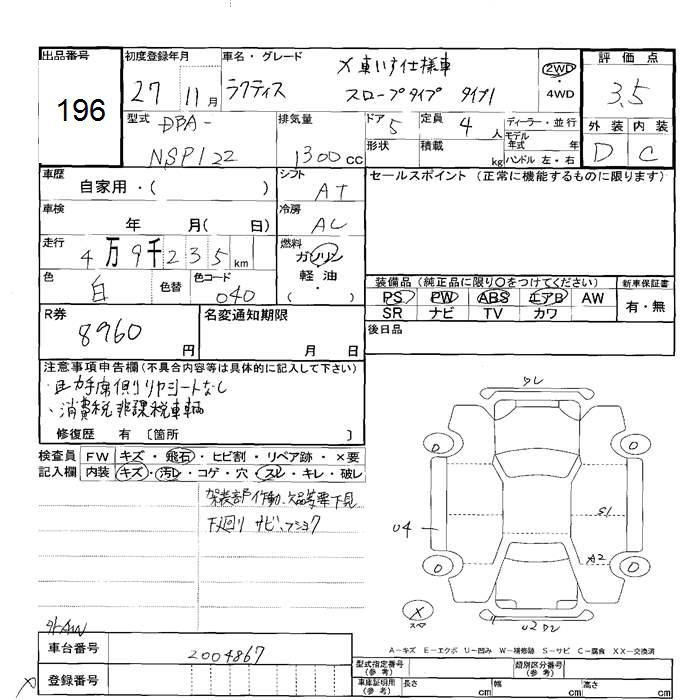 出品番号
196
初度登録年月
27 11月
車名・グレード
ラクティス
X 車いす仕様車
スロープタイプ タイプ1
2WD
・
4WD
評価点
3.5
外装 内装
D C
型式
DBA-
NSP122
排気量
1300cc
ドア 5
形状
定員 4人
積載 kg
ディーラー・並行
モデル年式 年
ハンドル 左・右
車歴
自家用・( )
シフト
AT
車検
年 月( 日)
冷房
AC
走行
4万9千235km
燃料
ガソリン
軽油
( ・ )
色
白
色替
色コード
040
セールスポイント (正常に機能するものに限ります)
装備品 (純正品に限り○をつけてください)
PS PW ABS エアB AW
SR ナビ TV カワ
新車保証書
有・無
後日品
R券
8960円
名変通知期限
月 日
注意事項申告欄(不具合内容等は具体的に記入して下さい)
・助手席側リヤシートなし
・消費税非課税車輌
修復歴 有 〔箇所 〕
検査員記入欄
FW キズ・飛石・ヒビ割・リペア跡・×要
内装 キズ・汚レ・コゲ・穴・スレ・キレ・破レ
架装部作動、欠品等要下見
下廻り サビ、フショク
外AW
ワレ
O
O
O
O
U4
S1
A2
X
スペア
U2 ワレ
A-キズ E-エクボ U-凹み W-補修跡 S-サビ C-腐食 XX-交換済
車台番号
2004867
登録番号
X
型式指定番号(参考)
類別区分番号(参考)
車庫証明用(参考)
長さ cm
幅 cm
高さ cm